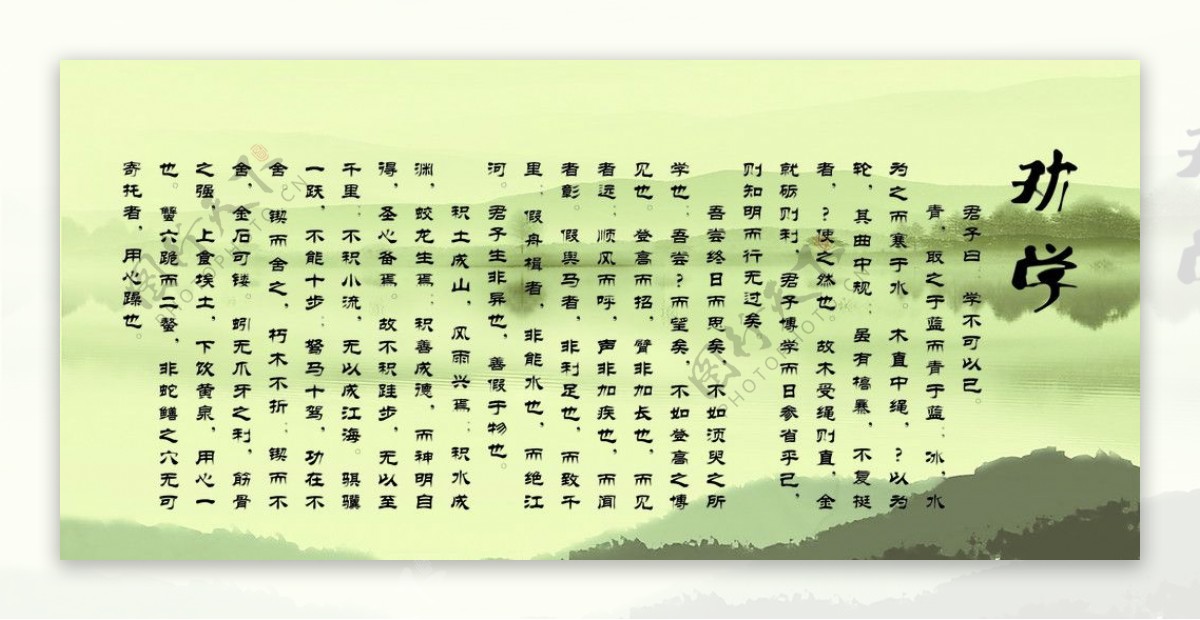 劝学
君子曰：学不可以已。
青，取之于蓝而青于蓝；冰，水
为之而寒于水。木直中绳，?以为
轮，其曲中规；虽有槁暴，不复挺
者，?使之然也。故木受绳则直，金
就砺则利，君子博学而日参省乎己，
则知明而行无过矣
吾尝终日而思矣，不如须臾之所
学也；吾尝?而望矣，不如登高之博
见也。登高而招，臂非加长也，而见
者远；顺风而呼，声非加疾也，而闻
者彰。假舆马者，非利足也，而致千
里；假舟楫者，非能水也，而绝江
河。君子生非异也，善假于物也。
积土成山，风雨兴焉；积水成
渊，蛟龙生焉；积善成德，而神明自
得，圣心备焉。故不积跬步，无以至
千里；不积小流，无以成江海。骐骥
一跃，不能十步；驽马十驾，功在不
舍 锲而舍之，朽木不折；锲而不
舍，金石可镂。蚓无爪牙之利，筋骨
之强，上食埃土，下饮黄泉，用心一
也。蟹六跪而二螯，非蛇鳝之穴无可
寄托者，用心躁也。
图行天下
PHOTOPHOTO.CN
图行天下
PHOTOPHOTO.CN